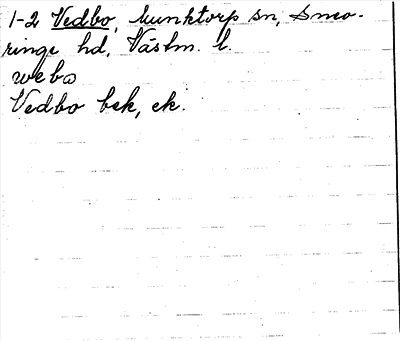 1-2 Vedbo, Munktorp sn, Snev-
ringe hd, Västm. l.
webo
Vedbo bek, ek.